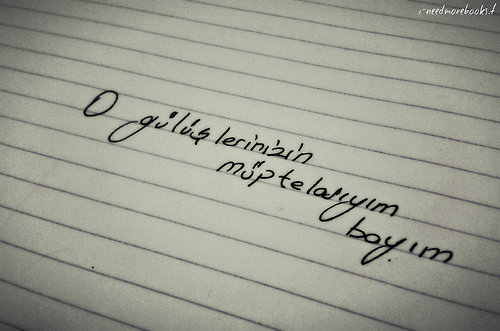 i-needmorebooks.t
O gülüşlerinizin
müptelasıyım
bayım